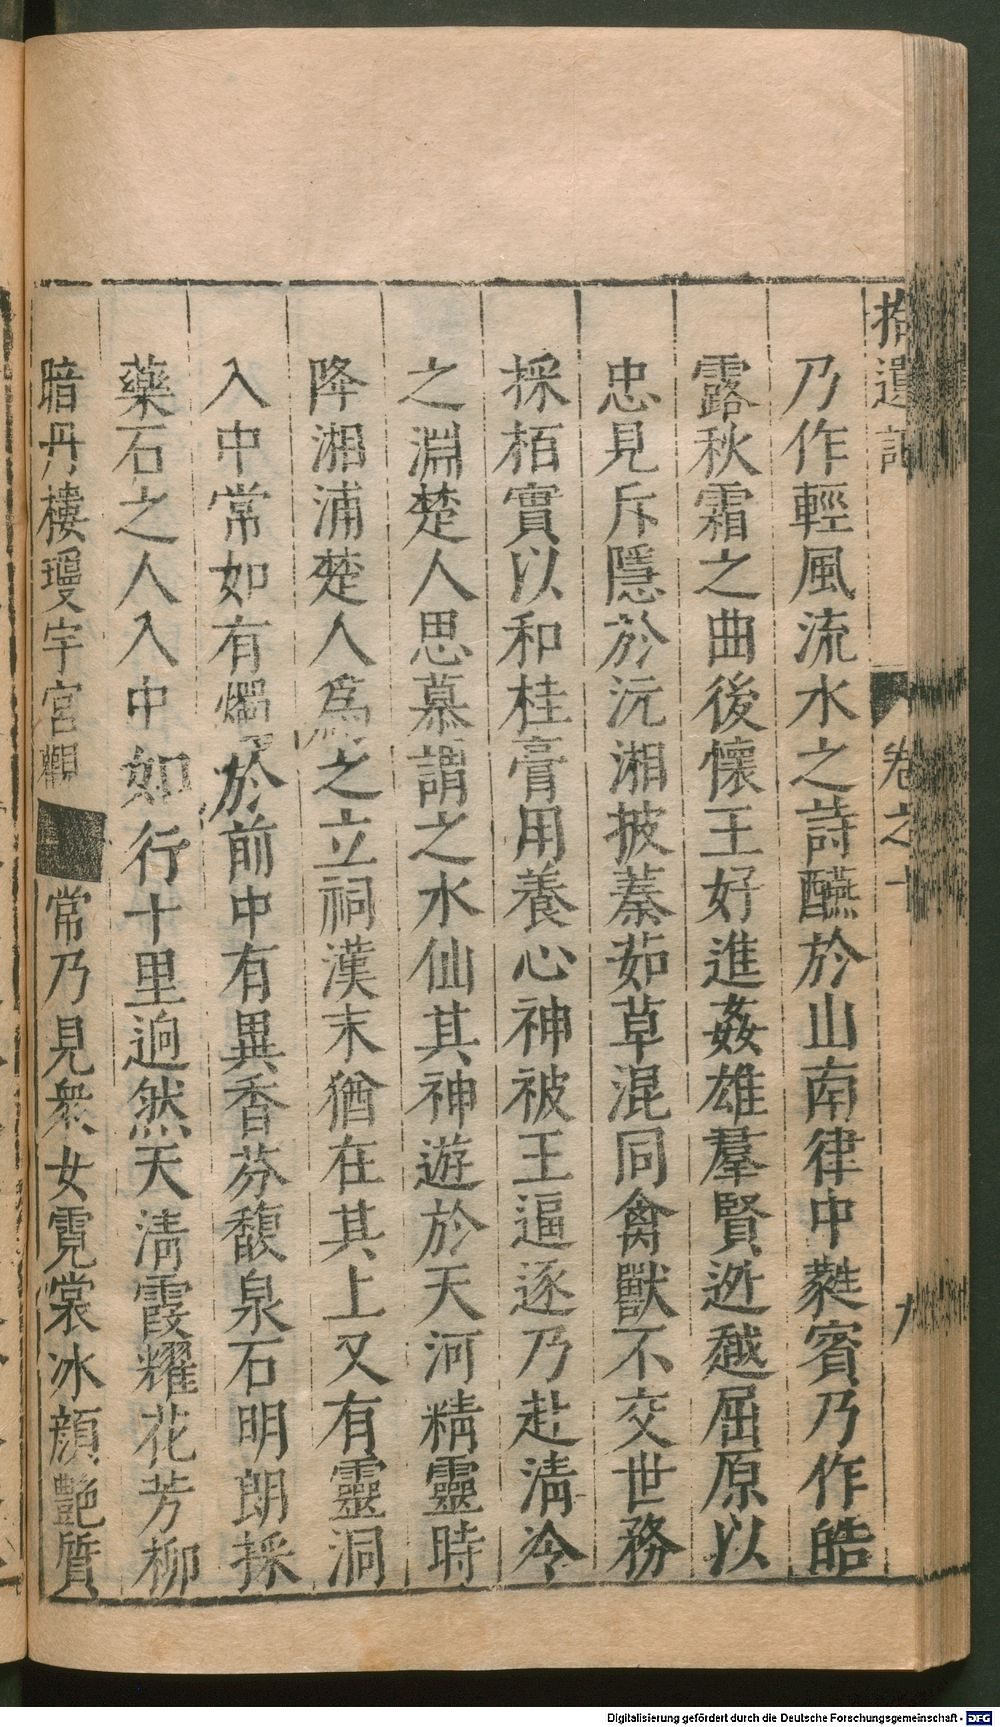 拾遺記 卷之十 九
乃作輕風流水之詩醼於山南律中蕤賓乃作皓
露秋霜之曲後懷王好進姦雄羣賢逃越屈原以
忠見斥隱於沅湘披蓁茹草混同禽獸不交世務
採栢實以和桂膏用養心神被王逼逐乃赴淸冷
之淵楚人思慕謂之水仙其神遊於天河精靈時
降湘浦楚人爲之立祠漢末猶在其上又有靈洞
入中常如有燭於前中有異香芬馥泉石明朗採
藥石之人入中如行十里逈然天淸霞耀花芳柳
暗丹樓瓊宇宮觀常乃見衆女霓裳冰顔艶質
Digitalisierung gefördert durch die Deutsche Forschungsgemeinschaft - DFG